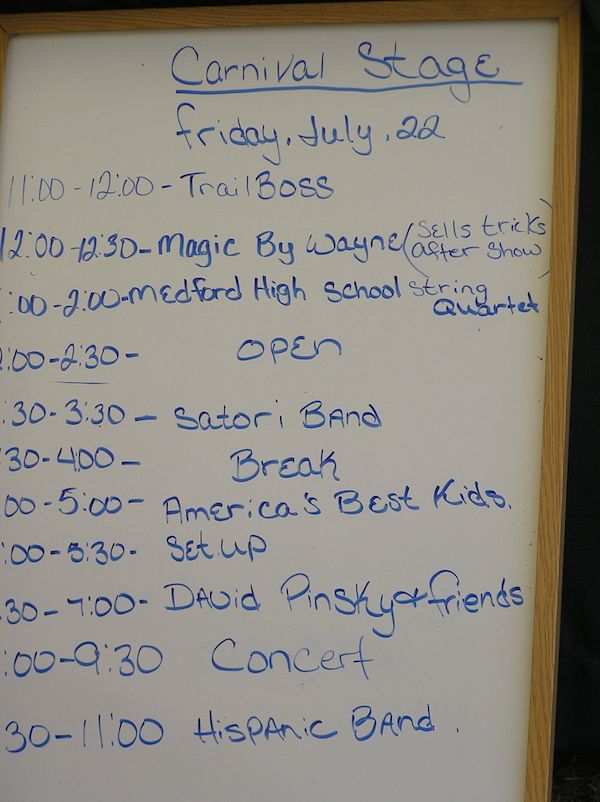 Carnival Stage
friday, July, 22
11:00-12:00-Trail Boss
12:00-12:30-Magic By Wayne (Sells tricks after show)
:00-2:00-Medford High School String Quartet
:00-2:30- OPEN
:30-3:30-Satori Band
30-4:00- Break
00-5:00-America's Best Kids.
:00-5:30- Set up
30-7:00-David Pinsky & friends
:00-9:30 Concert
30-11:00 Hispanic Band.